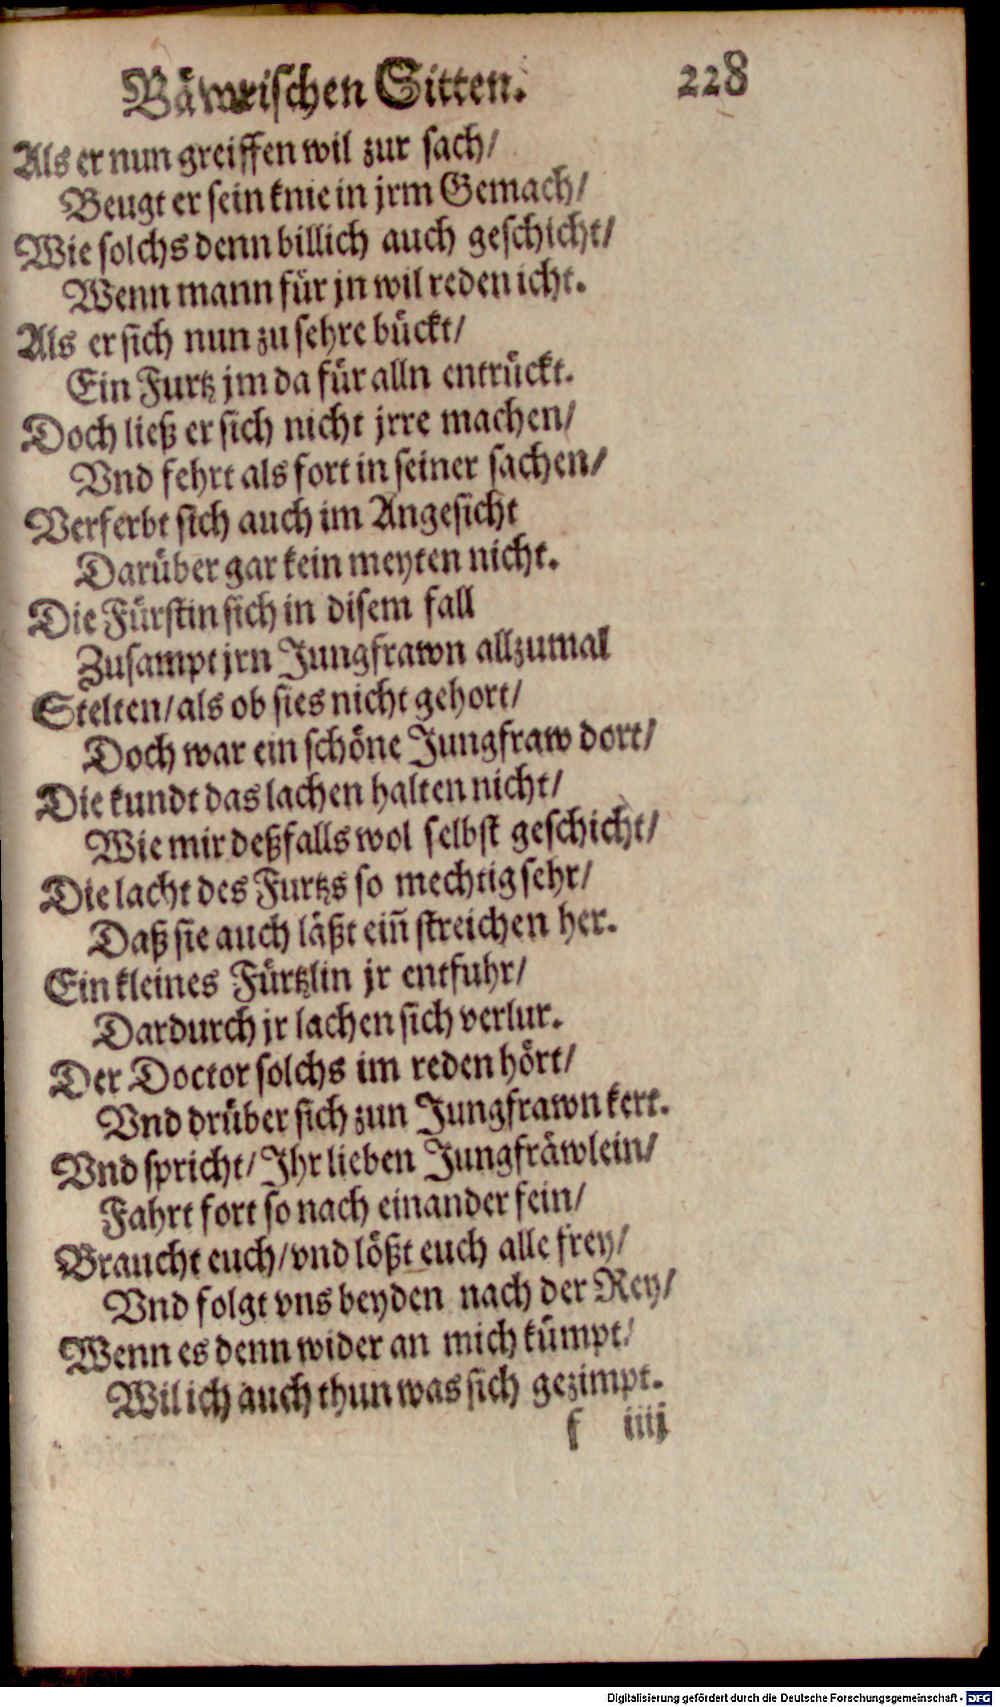 Bäwrischen Sitten. 228
Als er nun greiffen wil zur sach/
Beugt er sein knie in jrm Gemach/
Wie solchs denn billich auch geschicht/
Wenn mann für jn wil reden icht.
Als er sich nun zu sehre bückt/
Ein Furtz jm da für alln entrückt.
Doch ließ er sich nicht jrre machen/
Vnd fehrt als fort in seiner sachen/
Verferbt sich auch im Angesicht
Darüber gar kein meyten nicht.
Die Fürstin sich in disem fall
Zusampt jrn Jungfrawn allzumal
Stelten/als ob sies nicht gehort/
Doch war ein schöne Jungfraw dort/
Die kundt das lachen halten nicht/
Wie mir deßfalls wol selbst geschicht/
Die lacht des Furtzs so mechtig sehr/
Daß sie auch läßt ein̄ streichen her.
Ein kleines Fürtzlin jr entfuhr/
Dardurch jr lachen sich verlur.
Der Doctor solchs im reden hört/
Vnd drüber sich zun Jungfrawn kert.
Vnd spricht/Ihr lieben Jungfräwlein/
Fahrt fort so nach einander fein/
Braucht euch/vnd lößt euch alle frey/
Vnd folgt vns beyden nach der Rey/
Wenn es denn wider an mich kümpt/
Wil ich auch thun was sich gezimpt.
f iiij
Digitalisierung gefördert durch die Deutsche Forschungsgemeinschaft - DFG